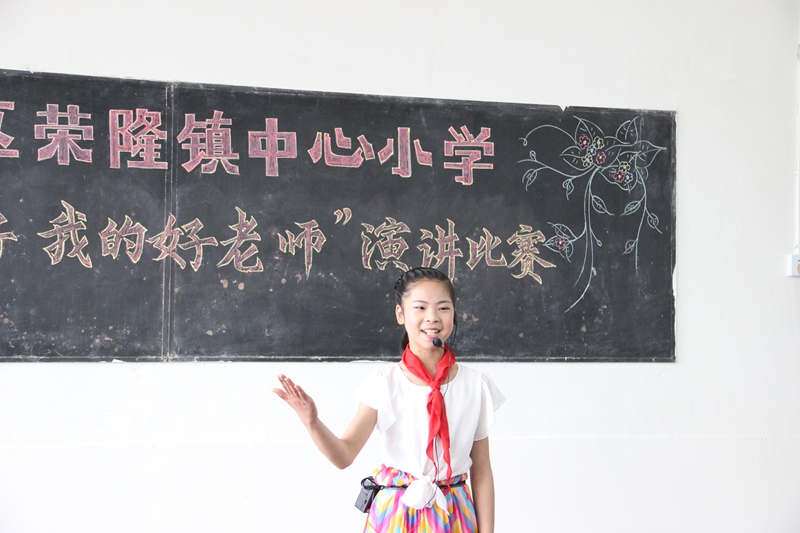 区荣隆镇中心小学
我的好老师”演讲比赛